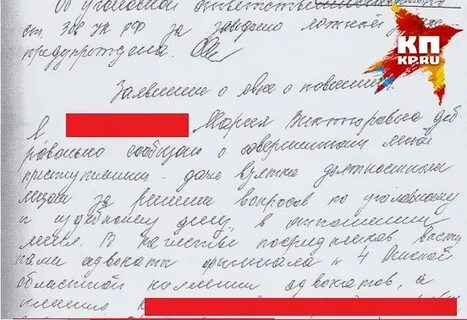 Об уголовной ответственности
ст 306 УК РФ за заведомо ложный донос
предупреждена.
КП
KP.RU
Заявление о явке с повинной
Я Мария Викторовна доб
ровольно сообщаю о совершенном мной
преступлении - даче взятки должностным
лицам за решение вопросов по уголовному
и судебному делу, в отношении
меня. В качестве посредников высту
пали адвокаты филиала № 4 Омской
областной коллегии адвокатов, а
именно